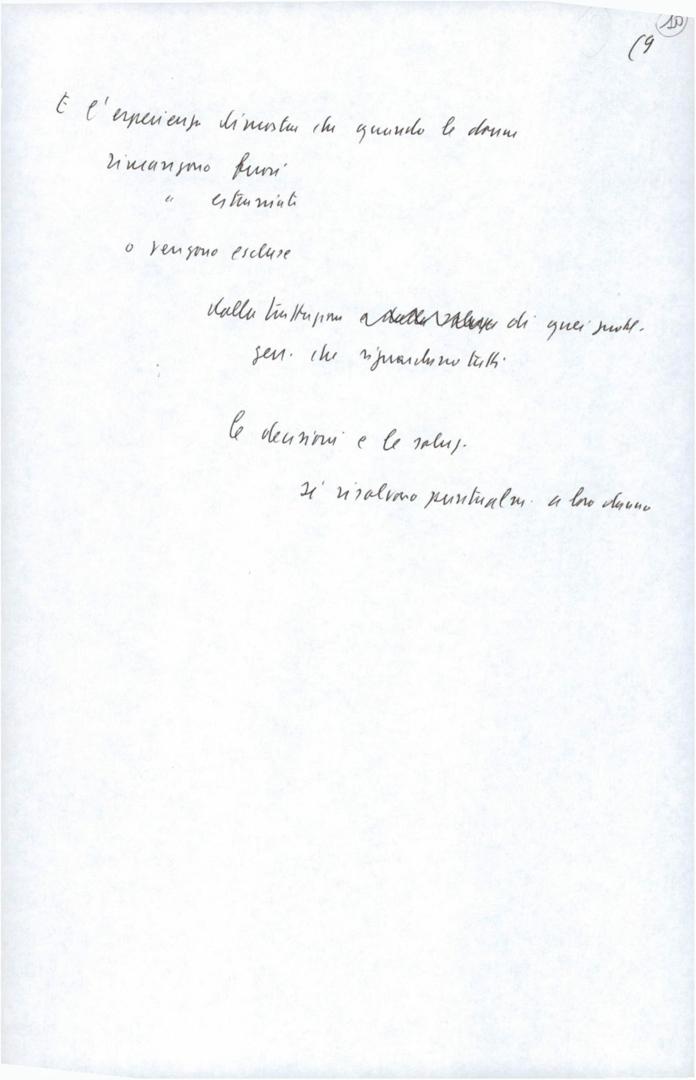 10
(9
E l'esperienza dimostra che quando le donne
rimangono fuori
" estraniate
o vengono escluse
dalla trattazione di quei probl.
gen. che riguardano tutti
le decisioni e le soluz.
si risolvono puntualm. a loro danno